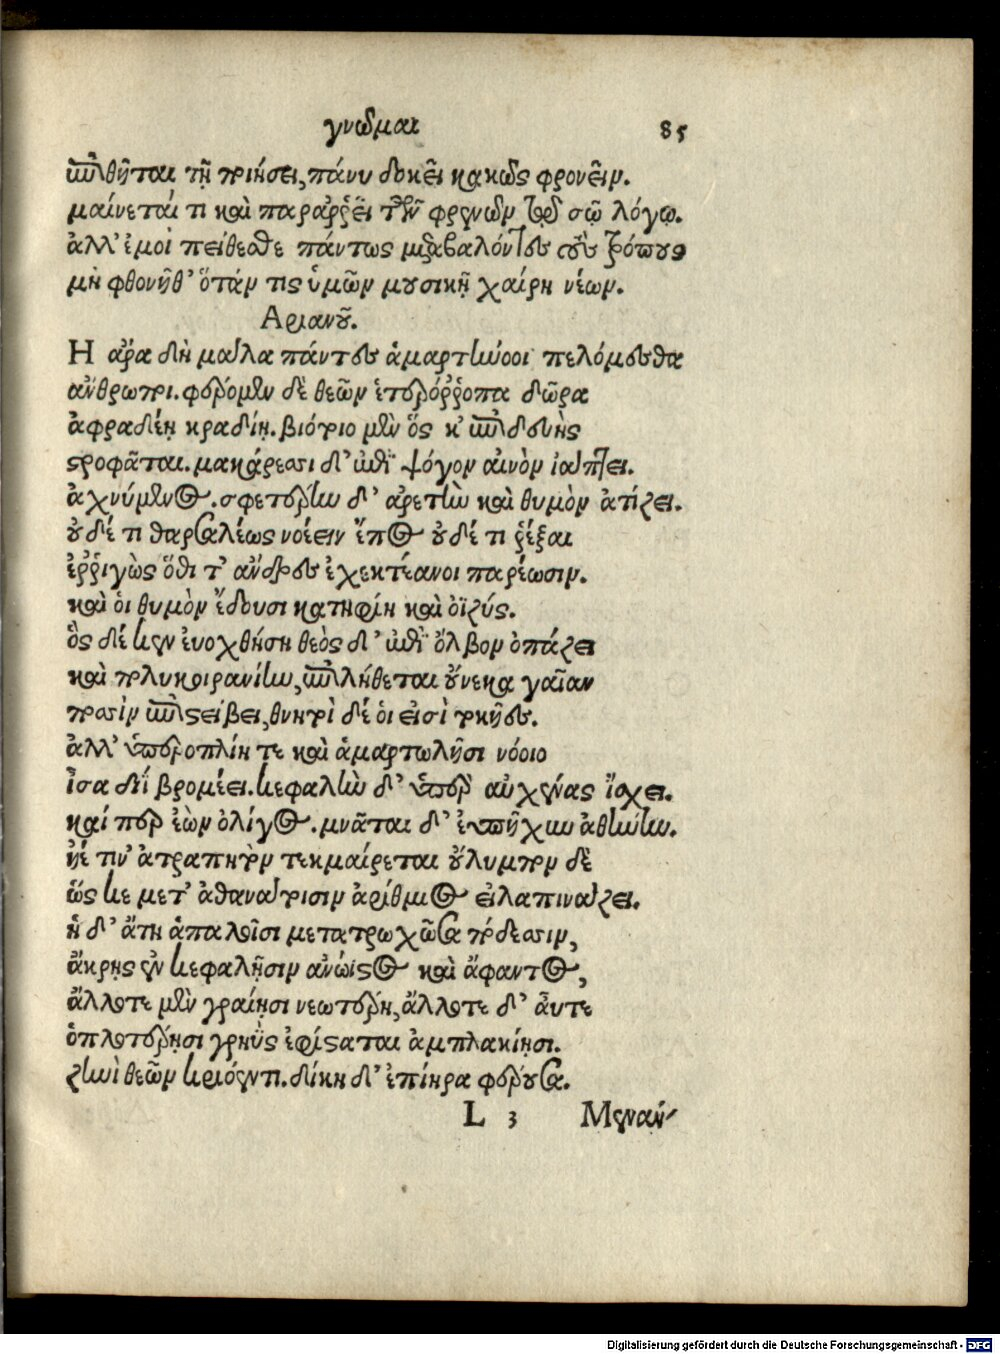 γνῶμαι 85
ἐπιθῆται τῇ ποιήσει, πάνυ δοκεῖ κακῶς φρονεῖν.
μαίνεταί τι καὶ παραρρεῖ τῶν φρενῶν τῷ σῷ λόγῳ.
ἀλλ' ἐμοὶ πείθεσθε πάντως μεταβαλόντες τοὺς τρόπους
μὴ φθονῆθ' ὅταν τις ὑμῶν μουσικῇ χαίρῃ νέων.
Αριανοῦ.
Η ἄρα δὴ μάλα πάντες ἁμαρτίνοοι πελόμεσθα
ἄνθρωποι. φέρομεν δὲ θεῶν ἑτερόρροπα δῶρα
ἀφραδέῃ κραδίῃ. βιότοιο μὲν ὅς κ' ἐπιδευὴς
στροφᾶται. μακάρεσσι δ' ἐπὶ ψόγον αἰνὸν ἰάπτει.
ἀχνύμενος. σφετέρην δ' ἀρετὴν καὶ θυμὸν ἀτίζει.
οὐδέ τι θαρσαλέως νοέειν ἔπος οὐδέ τι ῥέξαι
ἐρριγὼς ὅθι τ' ἄνδρες ἐχεκτέανοι παρέωσιν.
καὶ οἱ θυμὸν ἔδουσι κατηφίη καὶ ὀϊζύς.
ὃς δέ κεν εὐοχθήσῃ θεὸς δ' ἐπὶ ὄλβον ὀπάζει
καὶ πολυκοιρανίην, ἐπιλήθεται οὕνεκα γαῖαν
ποσὶν ἐπιστείβει, θνητοὶ δέ οἱ εἰσὶ τοκῆες.
ἀλλ' ὑπεροπλίῃ τε καὶ ἁμαρτωλῆσι νόοιο
ἶσα διῒ βρομέει. κεφαλὴν δ' ὑπὲρ αὐχένας ἴσχει.
καί περ ἐὼν ὀλίγος. μνᾶται δ' εὐπῆχυν ἀθήνην.
ἠέ τιν' ἀτραπητὸν τεκμαίρεται οὔλυμπον δὲ
ὥς κε μετ' ἀθανάτοισιν ἀρίθμιος εἰλαπινάζει.
ἡ δ' ἄτη ἁπαλοῖσι μετατρωχῶσα πόδεσσιν,
ἄκρῃς ἐν κεφαλῇσιν ἀνώϊστος καὶ ἄφαντος,
ἄλλοτε μὲν γραίῃσι νεωτέρη, ἄλλοτε δ' αὖτε
ὁπλοτέρῃσι γρηῢς ἐφίσταται ἀμπλακίῃσι.
ζηνὶ θεῶν κρείοντι. δίκῃ δ' ἐπίηρα φέρουσα.
L 3 Μεναν-
Digitalisierung gefördert durch die Deutsche Forschungsgemeinschaft - DFG